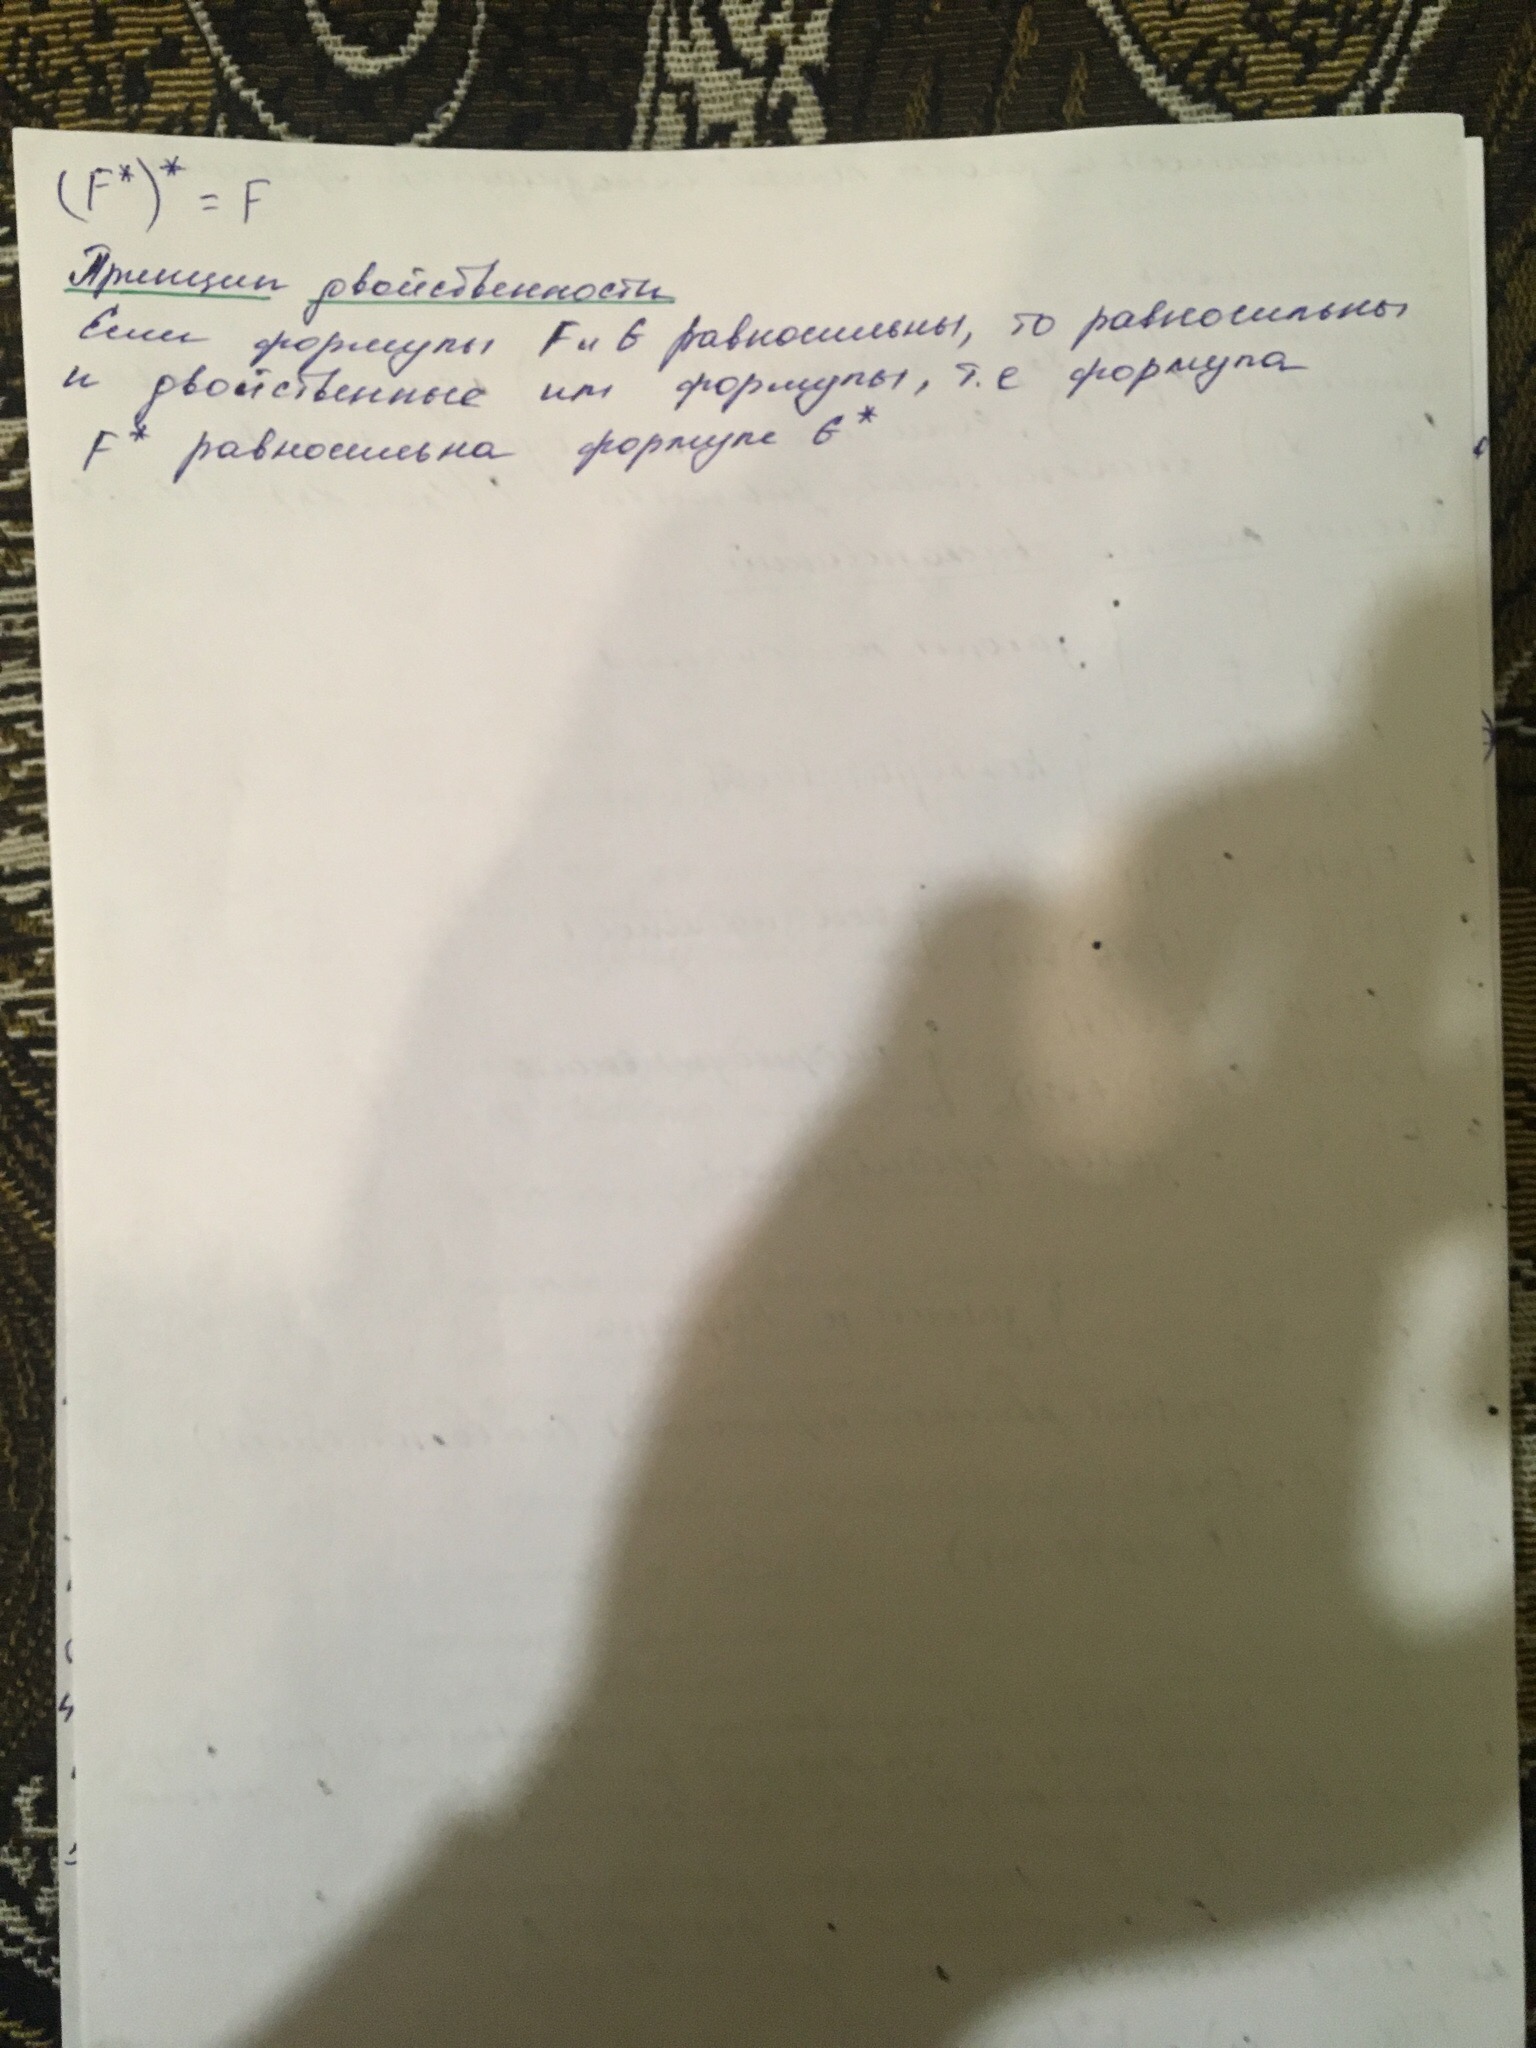 (F*)* = F
Принцип двойственности
Если формулы F и G равносильны, то равносильны
и двойственные им формулы, т.е формула
F* равносильна формуле G*